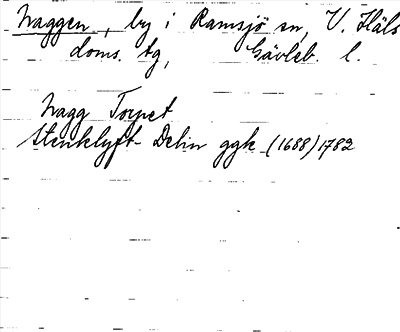 Naggen, by i Ramsjö sn, V. Häls
doms. tg, Gävleb. l.
Nagg Torpet
Stenklyft- Delin ggk (1688) 1782